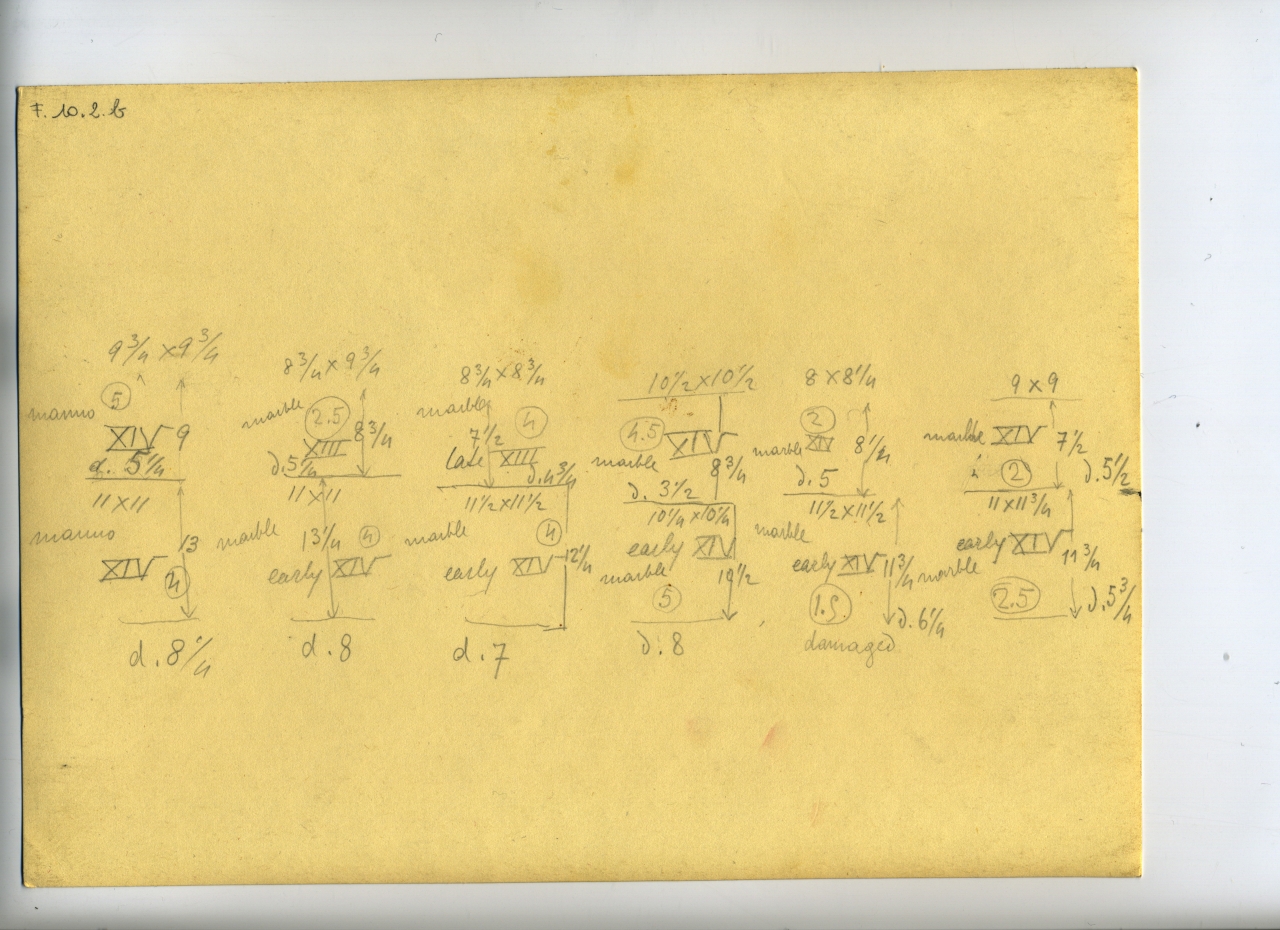 F. 10.2.b
9 3/4 × 9 3/4
5
XIV 9
d. 5 1/4
11 × 11
13
XIV
4
d. 8 1/4
8 3/4 × 9 3/4
marble
2.5
XIII 8 3/4
d. 5 1/4
11 × 11
marble
13 1/4
4
early XIV
d. 8
8 3/4 × 8 3/4
marble
4
7 1/2
late XIII
d. 4 3/4
11 1/2 × 11 1/2
marble
4
early XIV
12 1/4
d. 7
10 1/2 × 10 1/2
4.5
XIV
marble
8 3/4
d. 3 1/2
10 1/4 × 10 1/4
early XIV
marble
10 1/2
5
d. 8
8 × 8 1/4
2
marble XIV 8 1/4
d. 5
11 1/2 × 11 1/2
marble
early XIV 11 3/4
1.5
d. 6 1/4
damaged
9 × 9
marble XIV 7 1/2
2
d. 5 1/2
11 × 11 3/4
early XIV 11 3/4
marble
2.5
d. 5 3/4